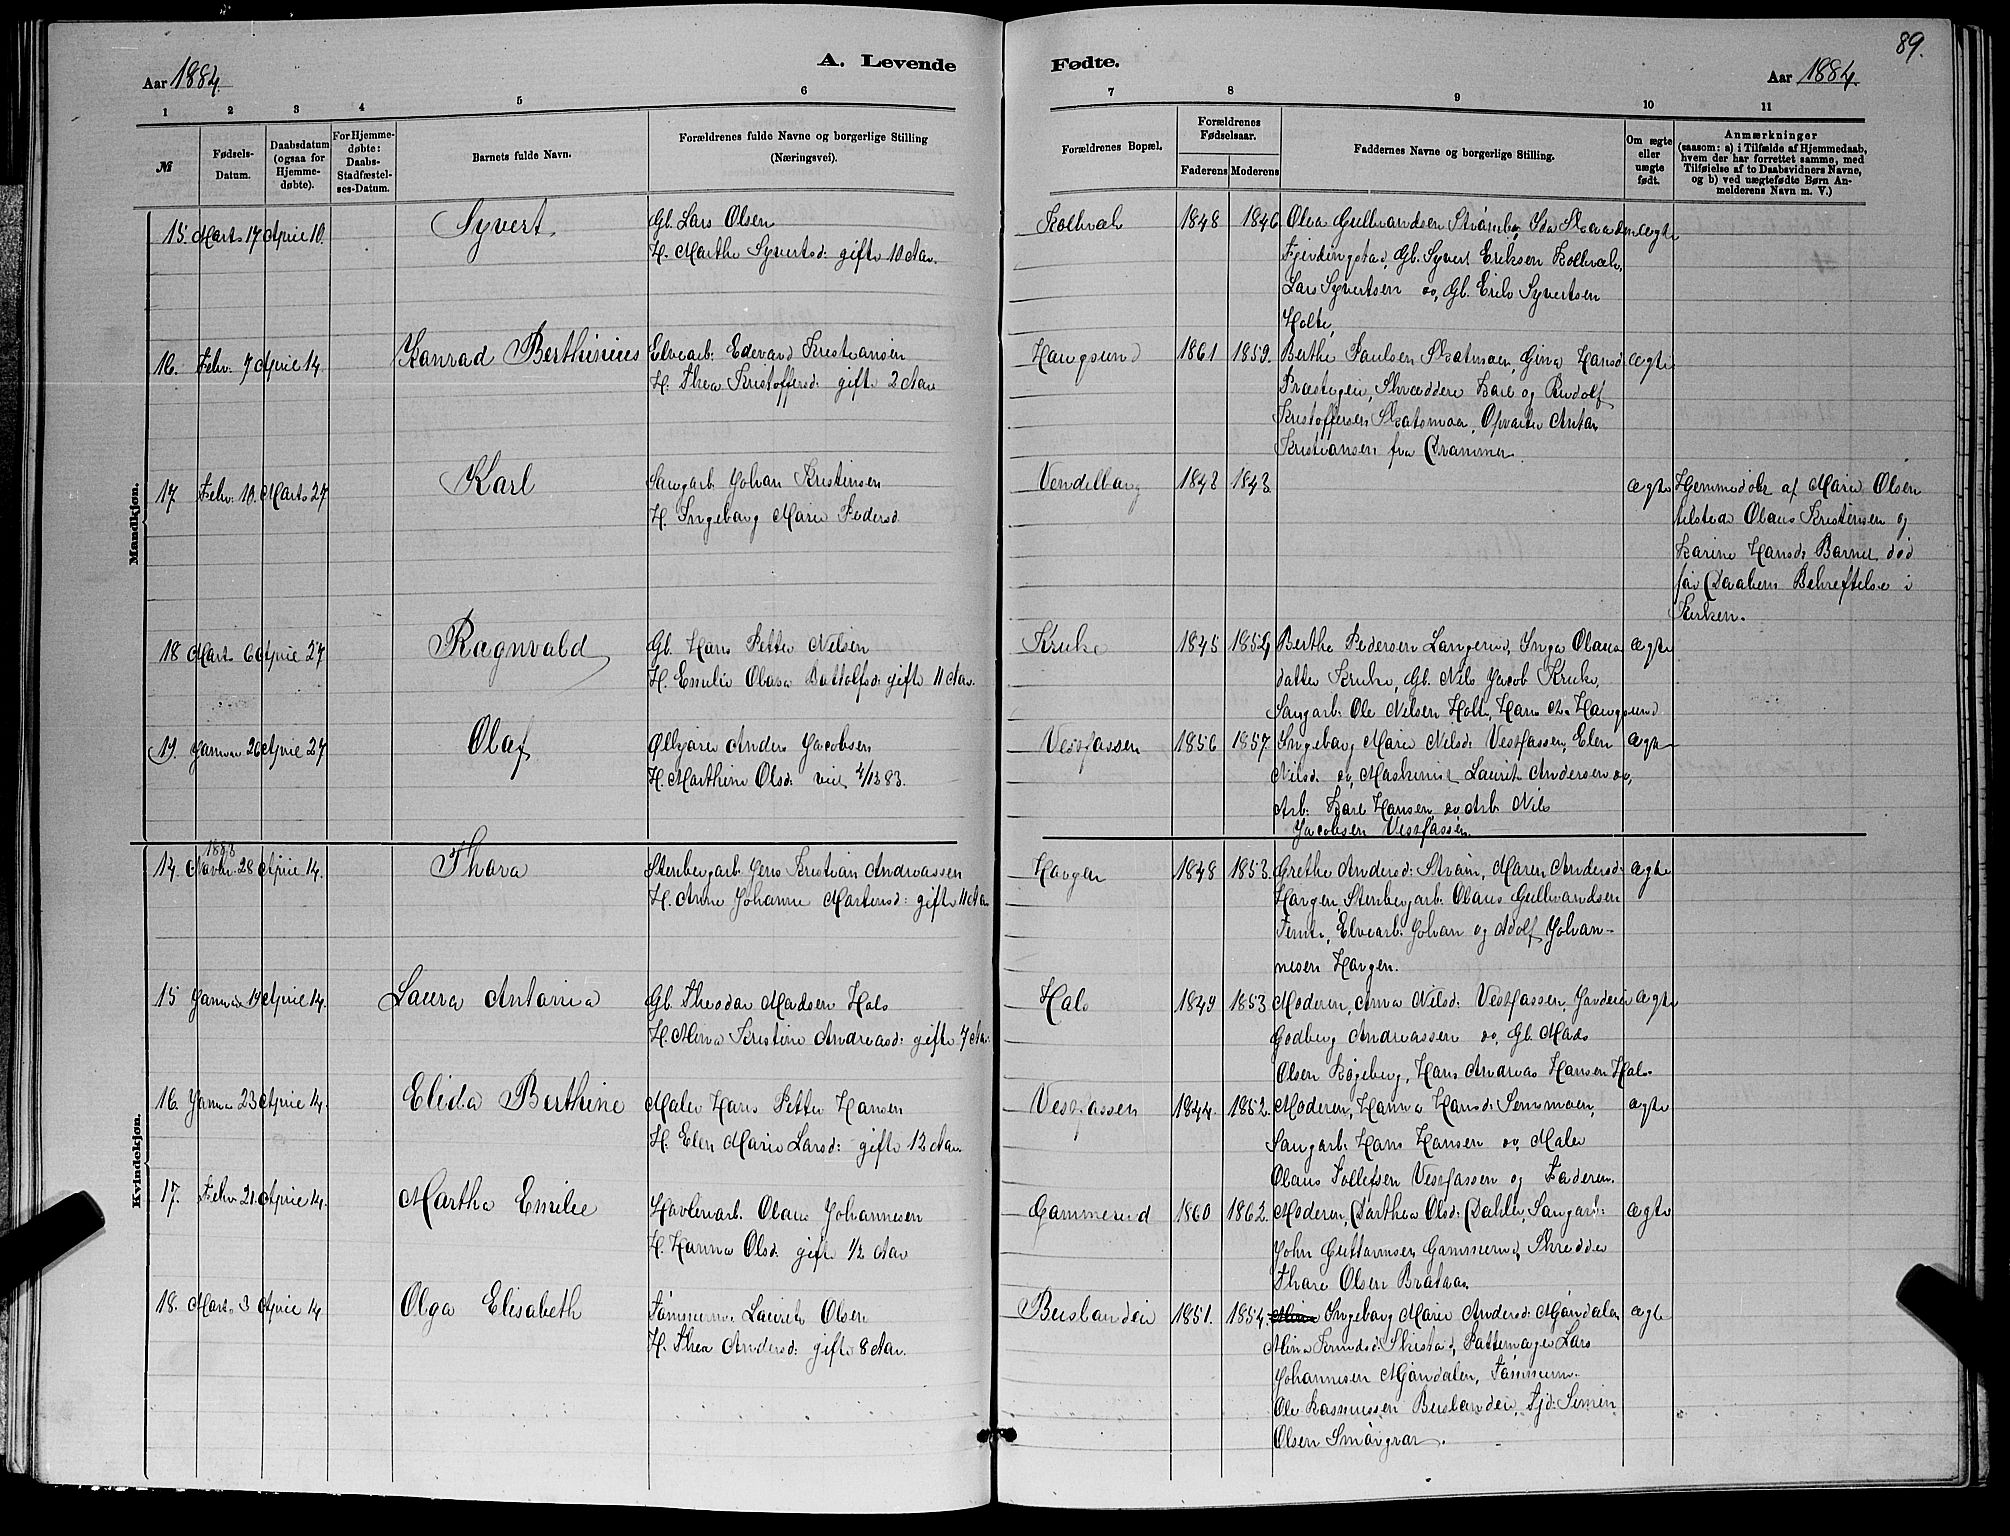 89.
A. Levende Fødte.
Aar 1884.
Aar 1884
1 2 3 4 5 6 7 8 9 10 11
№
Fødsels-
Datum.
Daabsdatum
(ogsaa for
Hjemme-
døbte).
For Hjemme-
døbte:
Daabs-
Stadfæstel-
ses-Datum.
Barnets fulde Navn.
Forældrenes fulde Navne og borgerlige Stilling
(Næringsvei).
Forældrenes Bopæl.
Forældrenes
Fødselsaar.
Faderens Moderens
Faddernes Navne og borgerlige Stilling.
Om ægte
eller
uægte
født.
Anmærkninger
(saasom: a) i Tilfælde af Hjemmedaab,
hvem der har forrettet samme, med
Tilføielse af to Daabsvidners Navne,
og b) ved uægtefødte Børn An-
melderens Navn m. V.)
Mandkjøn.
15. Marts 17 April 10. Syvert. Gb. Lars Olsen
H. Marthe Syvertsd: gifte 10 Aar.
1848 1846 Olea Gulbrandsen
Gb. Syvert Eriksen
Lars Syvertsen og Gb. Erik Syvertsen
Holte,
ægte
16. Febr. 7 April 14. Konrad Berthinius Elvearb. Edevard Kristiansen
H. Thea Kristoffersd: gifte 2 Aar
Haugsund 1861 1859. Berthe Paulsen Skotsmoen, Gina Hansd
Præstegein, Skræddere Karl og Rudolf
Kristoffersen Skotsmoen, Opvarter Anton
Kristiansen fra Drammen.
ægte
17 Febr: 10. Marts 27 Karl Saugarb. Johan Kristensen
H. Ingeborg Marie Pedersd.
Vendelborg 1843 1843. ægte
Hjemmedøbt af Marie Olsen
tilstede Olaus Kristensen og
Karine Hansd: Barnet død
før Daabens Bekræftelse i
Kirken.
18 Marts 6 April 27 Ragnvald Gb. Hans Petter Nilsen
H. Emilie Olava Bottolfsd: gifte 11 Aar.
Kruke 1845 1854 Berthe Pedersen Langerud, Inga Olaus
datter Kruke, Gb. Nils Jacob Kruke,
Saugarb. Ole Nilsen Holte, Hans Haugsund
ægte
19. Januar 26 April 27 Olaf Anders Jacobsen
H. Marthine Olsd: viet 4/12 83.
Vestfossen 1856 1857. Ingeborg Marie Nilsd: Vestfossen, Elen
Nilsd og Maskinist Laurits Andersen
Arb: Karl Hansen og Arb. Nils
Jacobsen Vestfossen.
ægte
Kvindekjøn.
1883
14. Novbr. 28 April 14. Thora Stenbergarb. Jens Kristian Andreassen
H. Anne Johanne Martensd: gifte 11 Aar
Haugen 1848 1853. Grethe Andersd: Strøm, Maren Andersd:
Haugen, Stenbergarb. Olaus Gulbrandsen
Elvearb. Johan og Adolf Johan-
nesen Haugen.
ægte
15 Januar 19 April 14. Laura Antonia Gb. Theodor Madsen Hals
H. Mina Kristine Andreasd: gifte 7 Aar.
Hals 1849 1853 Moderen, Anna Nilsd: Vestfossen,
Godberg Andreassen og Gb. Mads
Olsen Røgeberg, Hans Andreas Hansen Hals
ægte
16. Januar 23 April 14. Elida Berthine Maler Hans Petter Hansen
H. Elen Marie Larsd: gifte 12 Aar.
Vestfossen 1844. 1852. Moderen, Hanna Hansd: Semmoen,
Saugarb. Hans Hansen og Maler
Olaus Tollefsen Vestfossen og Faderen.
ægte
17. Febr 21. April 14. Martha Emilie Høvleriarb. Olaus Johannesen
H. Hanna Olsd. gifte 1/2 Aar
Gammerud 1860 1862. Moderen, Dorthea Olsd: Dahler, Saugarb:
John Guttormsen Gammerud, Skredder
Thore Olsen Brataas
ægte
18. Marts 3 April 14 Olga Elisabeth Tømmerm. Laurits Olsen
H. Thea Andersd: gifte 8 Aar.
Buslandeie 1851. 1854. Ingeborg Marie Andersd: Mjøndalen
Mina Knudsd: Skistad, Pottemager Lars
Johannesen Mjøndalen, Tømmerm.
Ole Rasmussen Buslandeie, Simen
Olsen Smørgrav.
ægte